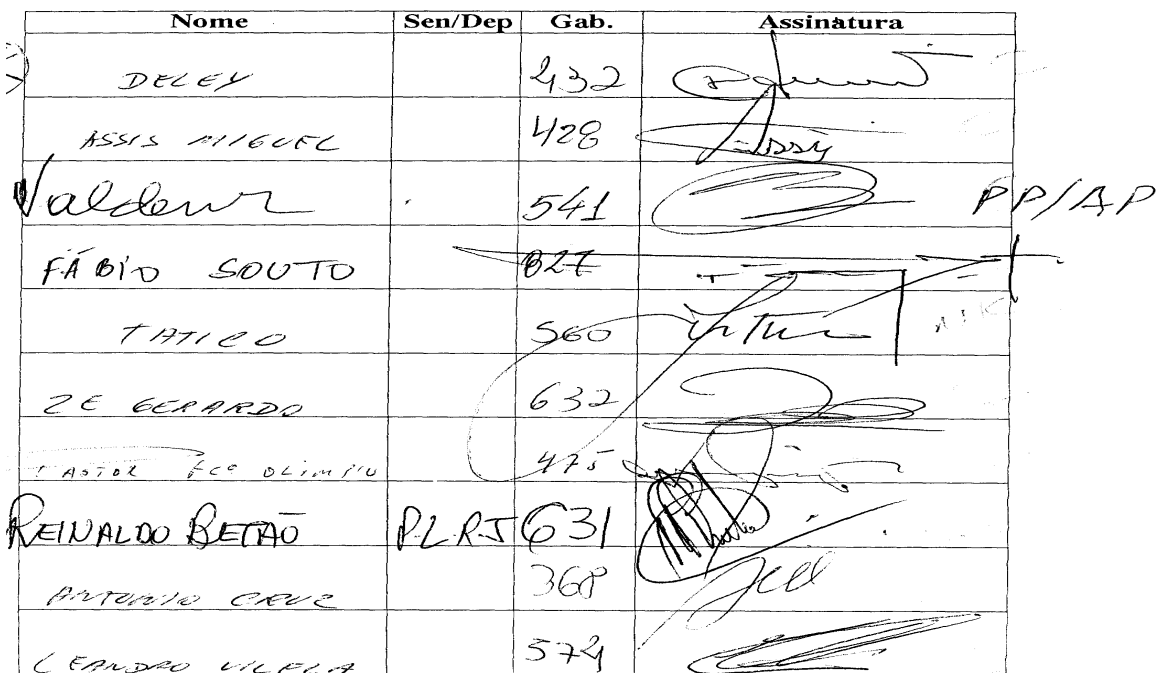 Nome Sen/Dep Gab. Assinatura
DELEY 432
ASSIS MIGUEL 428 Assis
Valdenir 541 PP/AP
FÁBIO SOUTO 827
TATICO 560
ZE GERARDO 632
PASTOR FCº OLIMPIO 475
REINALDO BETÃO PLRJ 631
ANTONIO CRUZ 368
LEANDRO VILELA 574